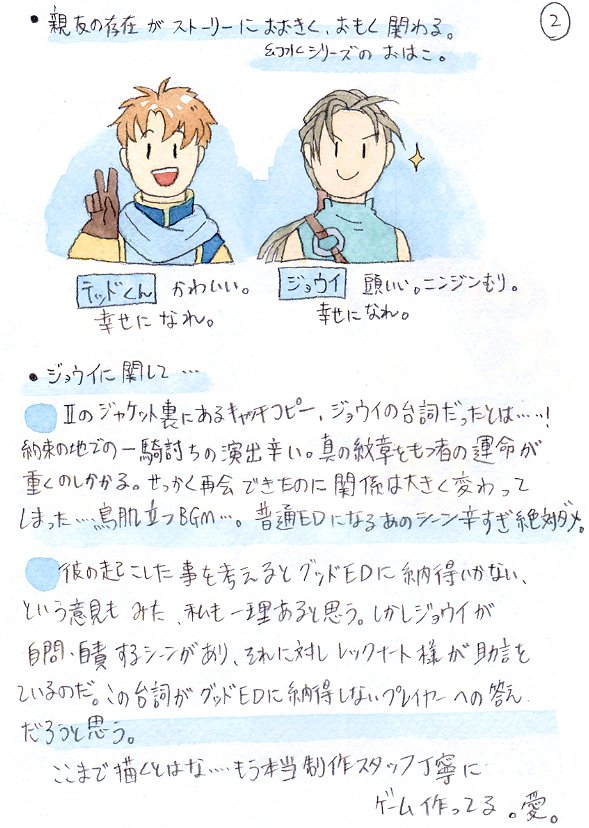 ・親友の存在がストーリーにおおきく、おもく関わる。
②
幻水シリーズのおはこ。
テッドくん かわいい。
幸せになれ。
ジョウイ 頭いい。ニンジンむり。
幸せになれ。
・ジョウイに関して…
Ⅱのジャケット裏にあるキャッチコピー、ジョウイの台詞だったとは……!
約束の地での一騎討ちの演出辛い。真の紋章をもつ者の運命が
重くのしかかる。せっかく再会できたのに関係は大きく変わって
しまった…鳥肌立つBGM…。普通EDになるあのシーン辛すぎ絶対ダメ。
彼の起こした事を考えるとグッドEDに納得いかない、
という意見もみた、私も一理あると思う。しかしジョウイが
自問・自責するシーンがあり、それに対しレックナート様が助言を
ているのだ。この台詞がグッドEDに納得しないプレイヤーへの答え
だろうと思う。
ここまで描くとはな…もう本当制作スタッフ丁寧に
ゲーム作ってる。愛。